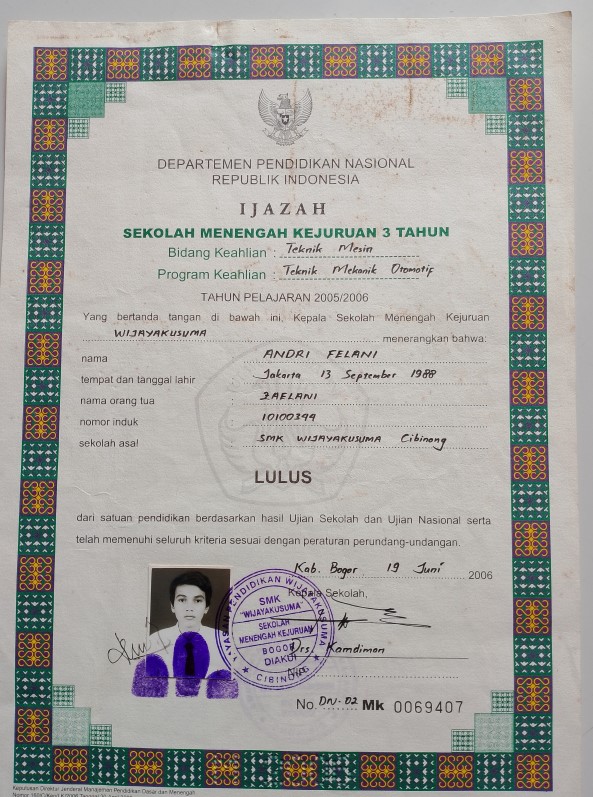 DEPARTEMEN PENDIDIKAN NASIONAL
REPUBLIK INDONESIA
IJAZAH
SEKOLAH MENENGAH KEJURUAN 3 TAHUN
Bidang Keahlian : Teknik Mesin
Program Keahlian : Teknik Mekanik Otomotif
TAHUN PELAJARAN 2005/2006
Yang bertanda tangan di bawah ini, Kepala Sekolah Menengah Kejuruan
WIJAYAKUSUMA menerangkan bahwa:
nama : ANDRI FELANI
tempat dan tanggal lahir : Jakarta 13 September 1988
nama orang tua : ZAELANI
nomor induk : 10100344
sekolah asal : SMK WIJAYAKUSUMA Cibinong
LULUS
dari satuan pendidikan berdasarkan hasil Ujian Sekolah dan Ujian Nasional serta
telah memenuhi seluruh kriteria sesuai dengan peraturan perundang-undangan.
Kab. Bogor 19 Juni 2006
Kepala Sekolah,
YAYASAN PENDIDIKAN WIJAYAKUSUMA
SMK
"WIJAYAKUSUMA"
SEKOLAH
MENENGAH KEJURUAN
BOGOR
DIAKUI
CIBINONG
Drs. Kamdiman
No. DN-02 Mk 0069407
Keputusan Direktur Jenderal Manajemen Pendidikan Dasar dan Menengah